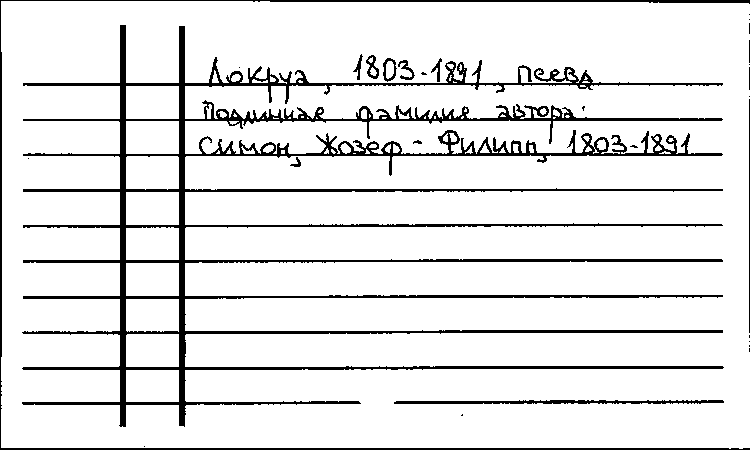 Локруа, 1803-1891, псевд
Подлинная фамилия автора:
Симон, Жозеф-Филипп, 1803-1891